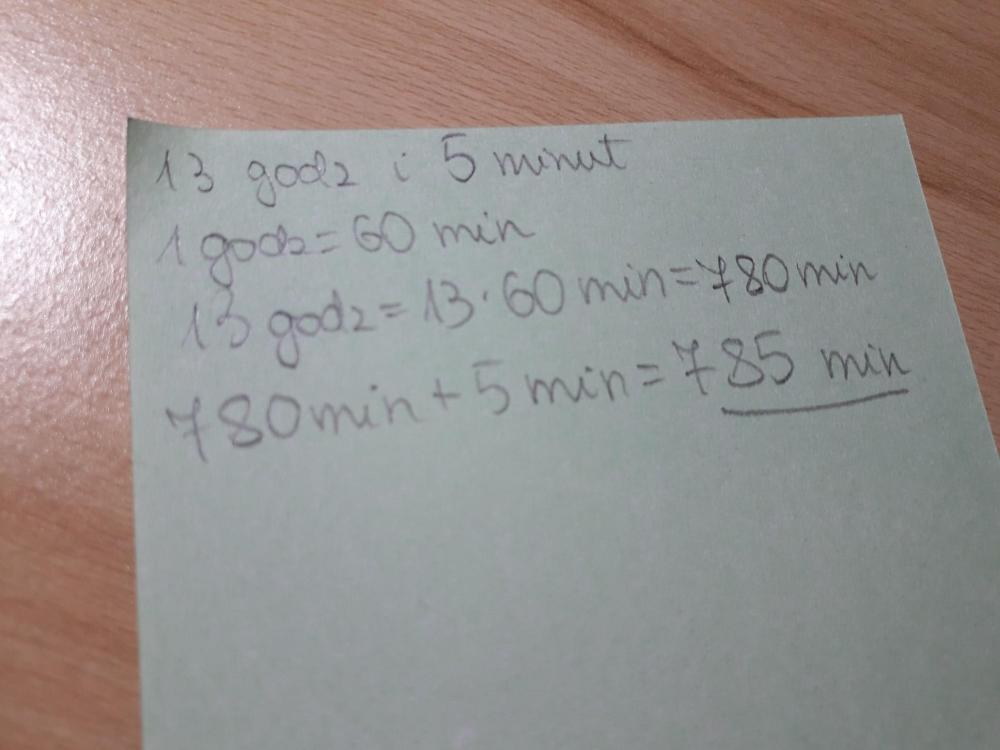 13 godz i 5 minut
1 godz = 60 min
13 godz = 13 · 60 min = 780 min
780 min + 5 min = 785 min